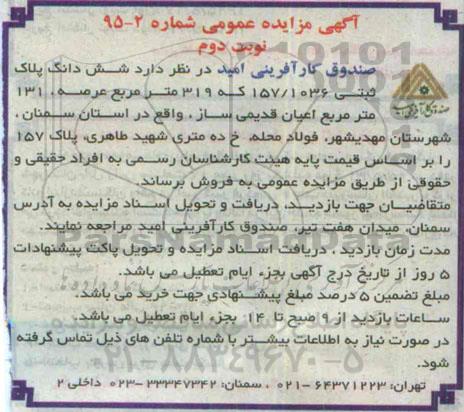 آگهی مزایده عمومی شماره ۲-۹۵
نوبت دوم
صندوق کارآفرینی امید در نظر دارد شش دانگ پلاک
ثبتی ۱۵۷/۱۰۳۶ که ۳۱۹ متر مربع عرصه، ۱۳۱
متر مربع اعیان قدیمی ساز، واقع در استان سمنان،
شهرستان مهدیشهر، فولاد محله، خ ده متری شهید طاهری، پلاک ۱۵۷
را بر اساس قیمت پایه هیئت کارشناسان رسمی به افراد حقیقی و
حقوقی از طریق مزایده عمومی به فروش برساند.
متقاضیان جهت بازدید، دریافت و تحویل اسناد مزایده به آدرس
سمنان، میدان هفت تیر، صندوق کارآفرینی امید مراجعه نمایند.
مدت زمان بازدید، دریافت اسناد مزایده و تحویل پاکت پیشنهادات
۵ روز از تاریخ درج آگهی بجزء ایام تعطیل می باشد.
مبلغ تضمین ۵ درصد مبلغ پیشنهادی جهت خرید می باشد.
ساعات بازدید از ۹ صبح تا ۱۴ بجزء ایام تعطیل می باشد.
در صورت نیاز به اطلاعات بیشتر با شماره تلفن های ذیل تماس گرفته
شود.
تهران: ۶۴۳۷۱۲۲۳-۰۲۱ ، سمنان: ۳۳۳۴۷۳۴۲-۰۲۳ داخلی ۲
۰۲۱-۸۸۳۴۹۶۷۰-۵